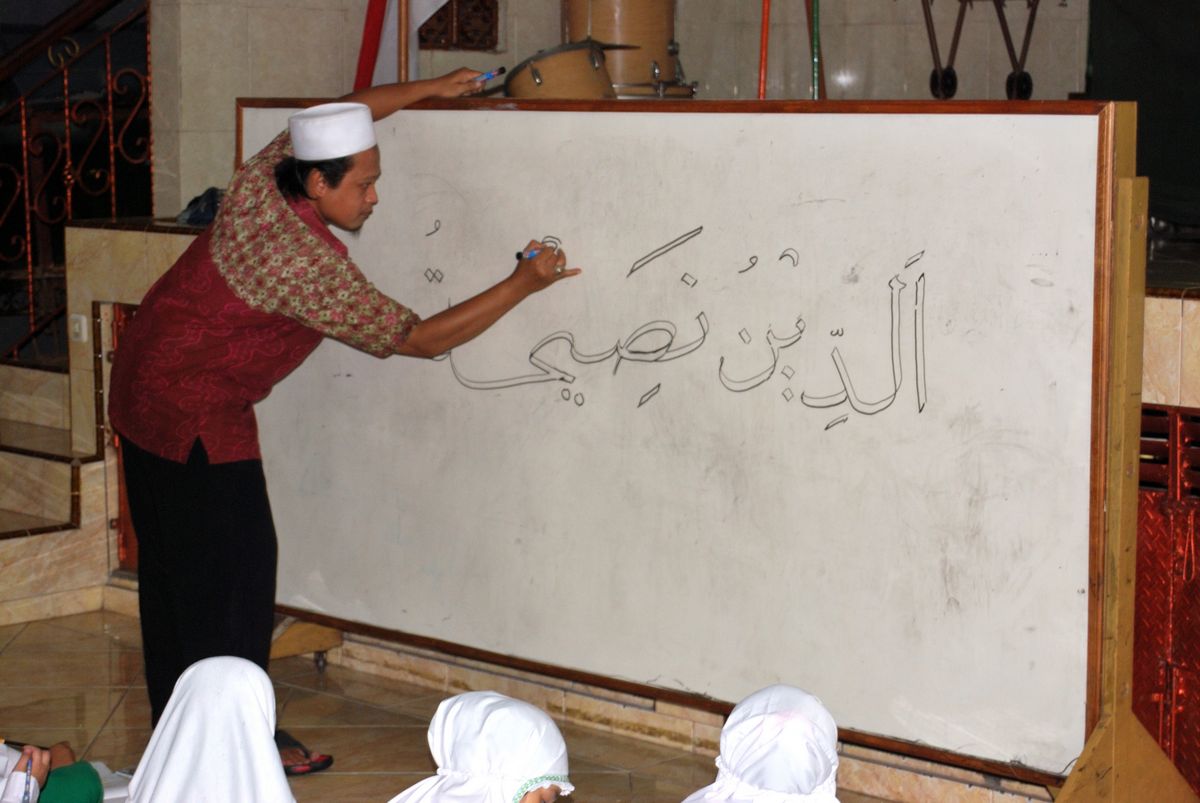 اَلدِّيْنُ نَصِيْحةُ